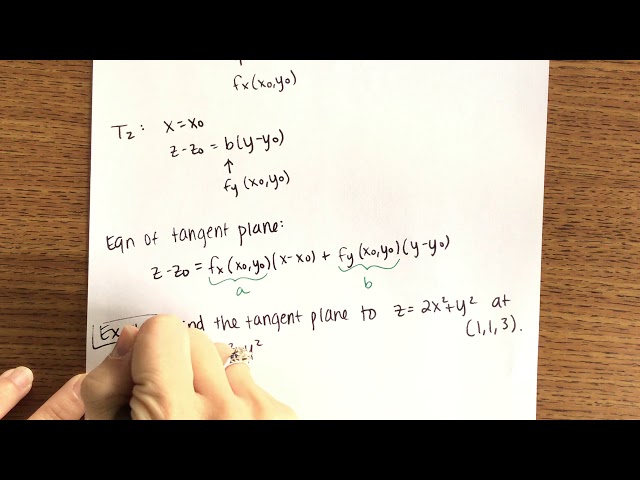 fx(x0,y0)
T2: x=x0
z-z0 = b(y-y0)
↑
fy(x0,y0)
Eqn of tangent plane:
z-z0 = fx(x0,y0)(x-x0) + fy(x0,y0)(y-y0)
a b
the tangent plane to z=2x²+y² at
(1,1,3).